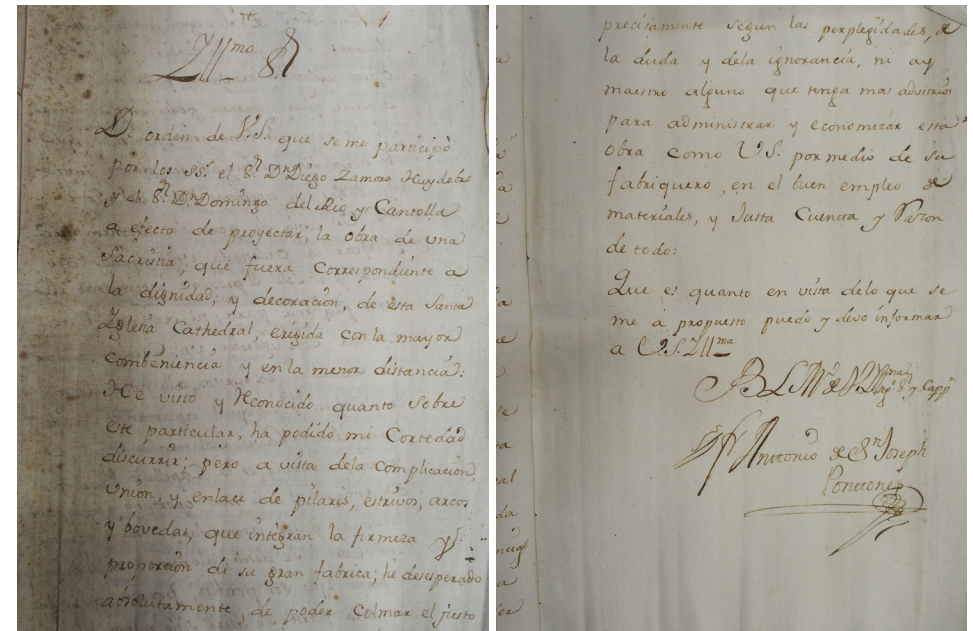 Yllma Sr
De orden de V.S. que se me participò
por los SSs. el Sr Dn Diego Zamora Huydobro
y el Sr Dn Domingo del Rio y Cantolla
a efecto de proyectar, la obra de una
Sacristia, que fuera correspondiente a
la dignidad, y decoracion, de esta Santa
Yglesia Cathedral, erigida con la mayor
combeniencia y en la menor distancia:
He visto y Reconocido quanto sobre
este particular, ha podido mi Cortedad
discurrir; pero a vista dela complicacion,
Union, y enlace de pilares, estrivos, arcos
y bovedas, que intègran la firmeza y
proporcion de su gran fabrica; he desesperado
absolutamente, de poder Colmar el justo
precisamente segun las perplegidades, de
la duda y dela ignorancia, ni ay
maestro alguno que tenga mas
para administrar y economizar esta
Obra como VS. por medio de su
fabriquero, en el buen empleo de
materiales, y Justa Cuenta y Razon
de todo:
Que es quanto en vista delo que se
me à propuesto puedo y devo informar
a V.S. Yllma
B L M de V Yllma
Fr Antonio de Sn Joseph
Pontones